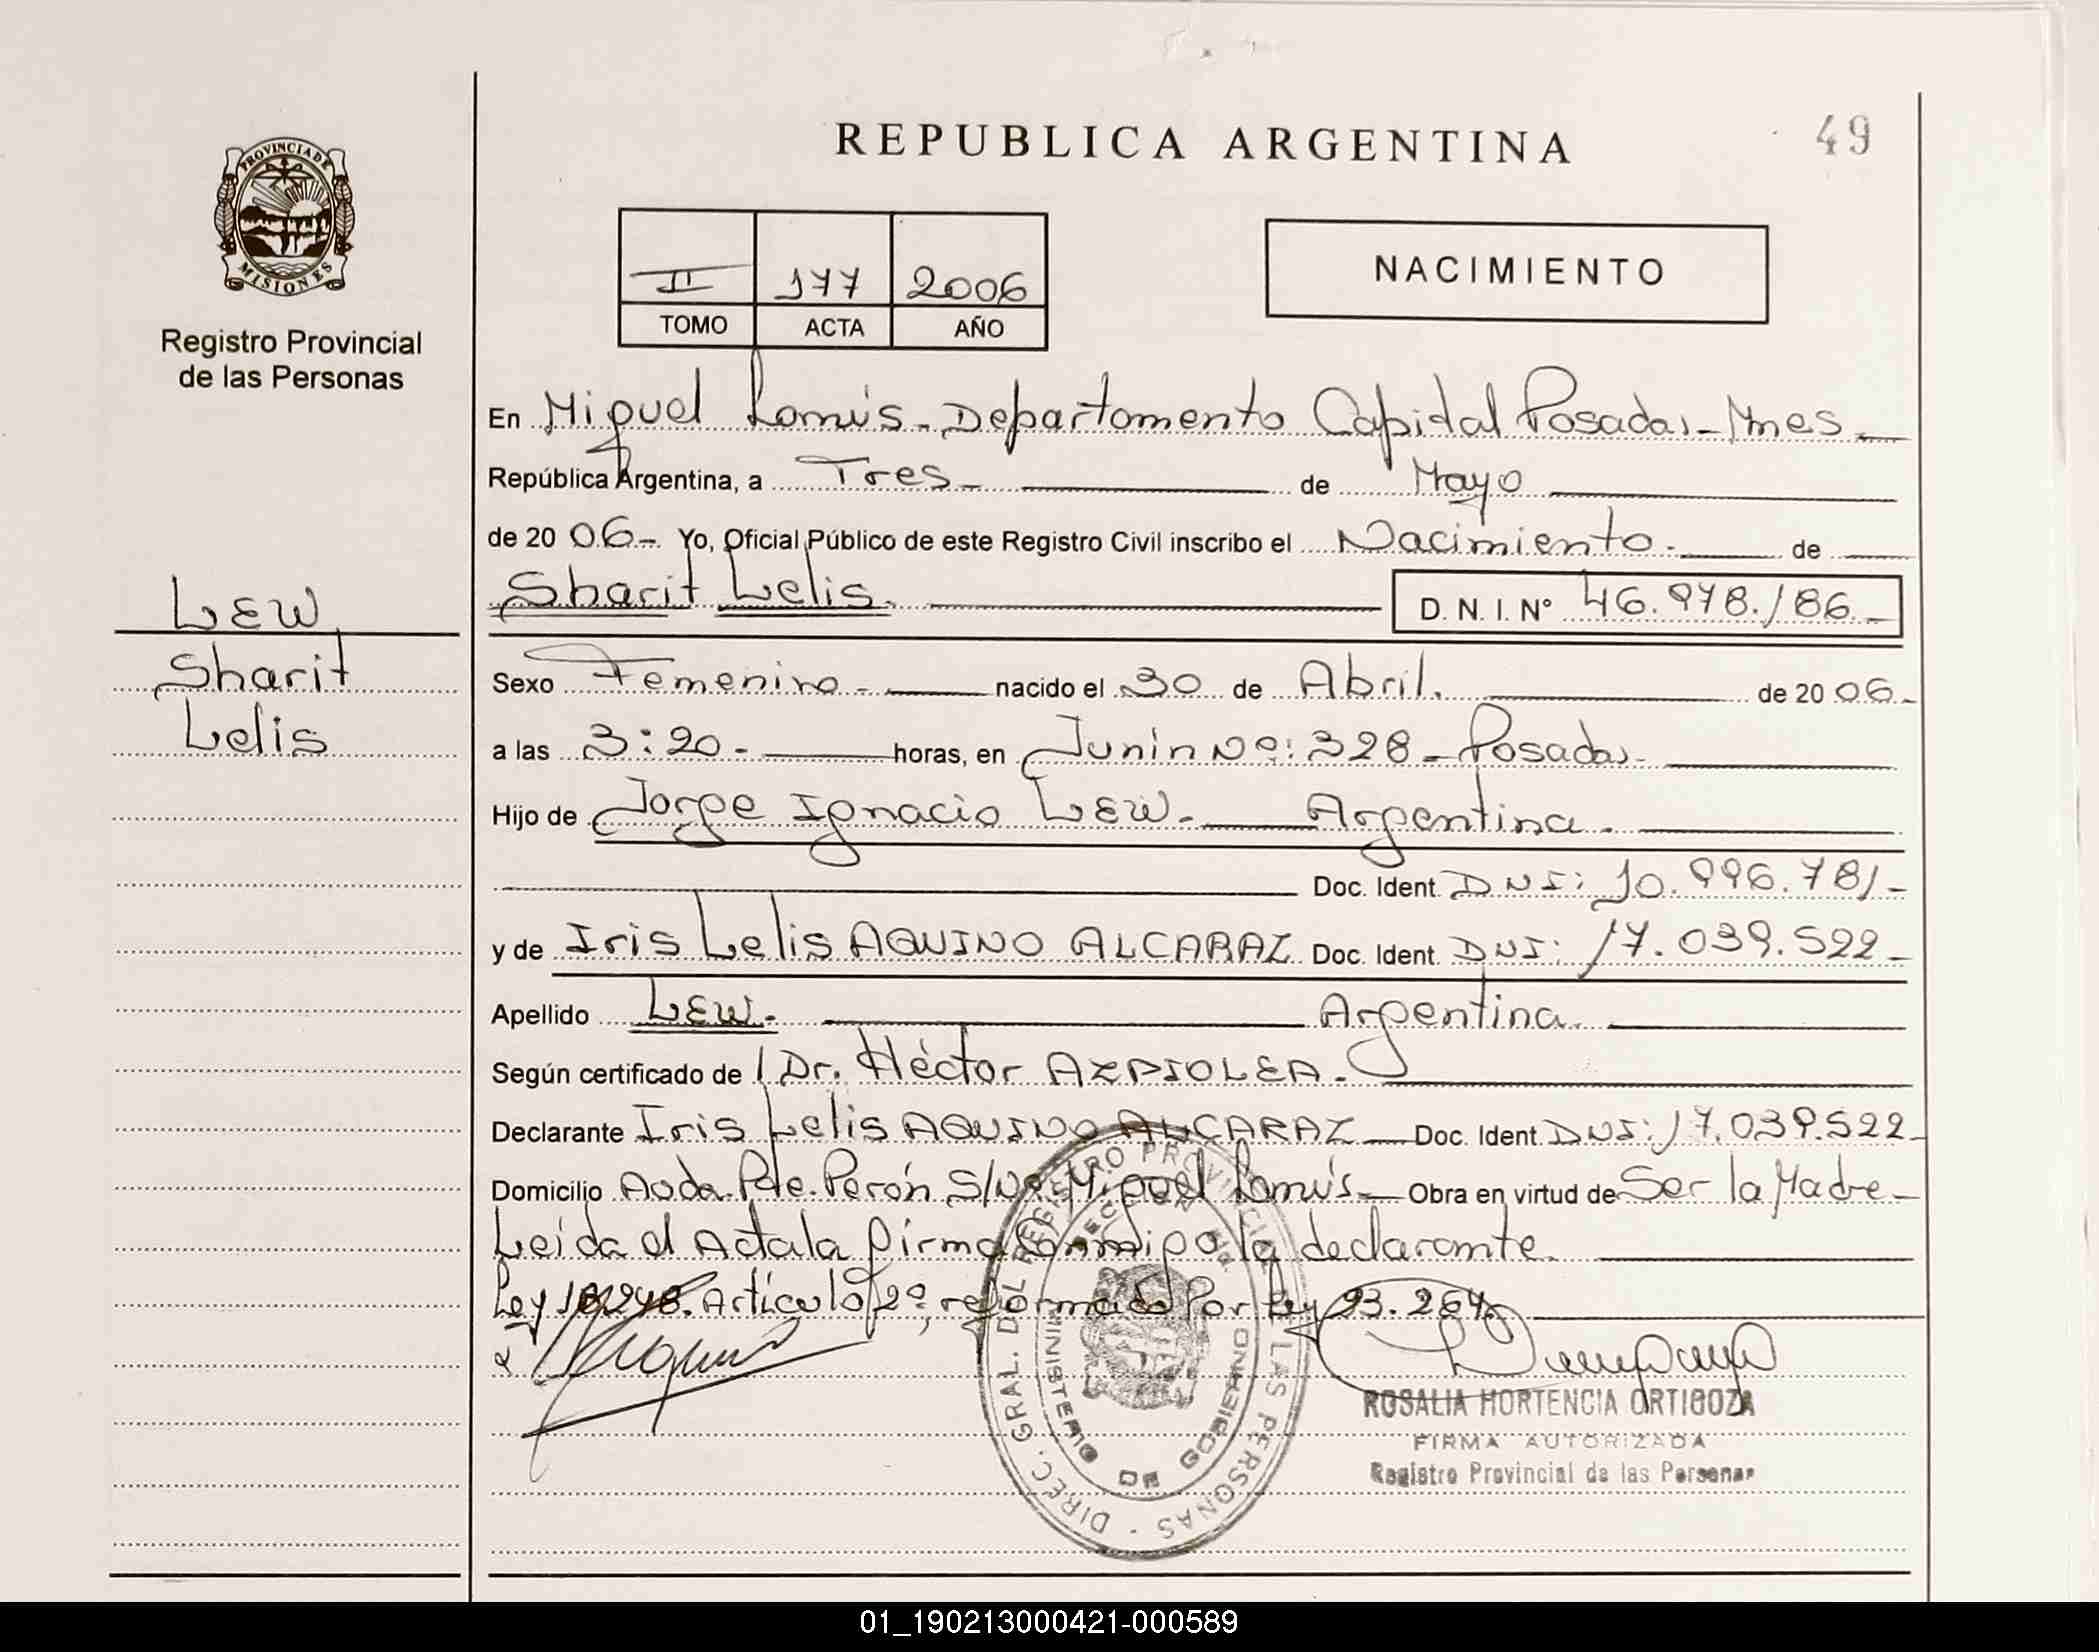 REPUBLICA ARGENTINA
49
PROVINCIA DE
MISIONES
Registro Provincial
de las Personas
II 177 2006
TOMO ACTA AÑO
NACIMIENTO
En Miguel Lanús - Departamento Capital Posadas - Mnes -
República Argentina, a Tres - de Mayo
de 20 06 - Yo, Oficial Público de este Registro Civil inscribo el Nacimiento - de
Sharit Lelis. D. N. I. N° 46.978.186.-
LEW
Sharit
Lelis
Sexo Femenino - nacido el 30 de Abril. de 20 06 -
a las 3:20 - horas, en Junin Nº: 328 - Posadas -
Hijo de Jorge Ignacio LEW. - Argentina.
Doc. Ident. DNI: 10.996.781 -
y de Iris Lelis AQUINO ALCARAZ Doc. Ident. DNI: 17.039.522 -
Apellido LEW. - Argentina.
Según certificado de Dr. Héctor
Declarante Iris Lelis AQUINO ALCARAZ Doc. Ident. DNI: 17.039.522 -
Domicilio Avda. Pte. Perón S/Nº Miguel Lanús - Obra en virtud de Ser la Madre -
Leída el Acta la firma conmigo la declarante.
Ley 18248. Artículo 2º, reformado Por Ley 23.264
DIREC. GRAL. DEL REGISTRO PROVINCIAL DE LAS PERSONAS -
MINISTERIO DE GOBIERNO
ROSALIA HORTENCIA ORTIGOZA
FIRMA AUTORIZADA
Registro Provincial de las Personas
01_190213000421-000589